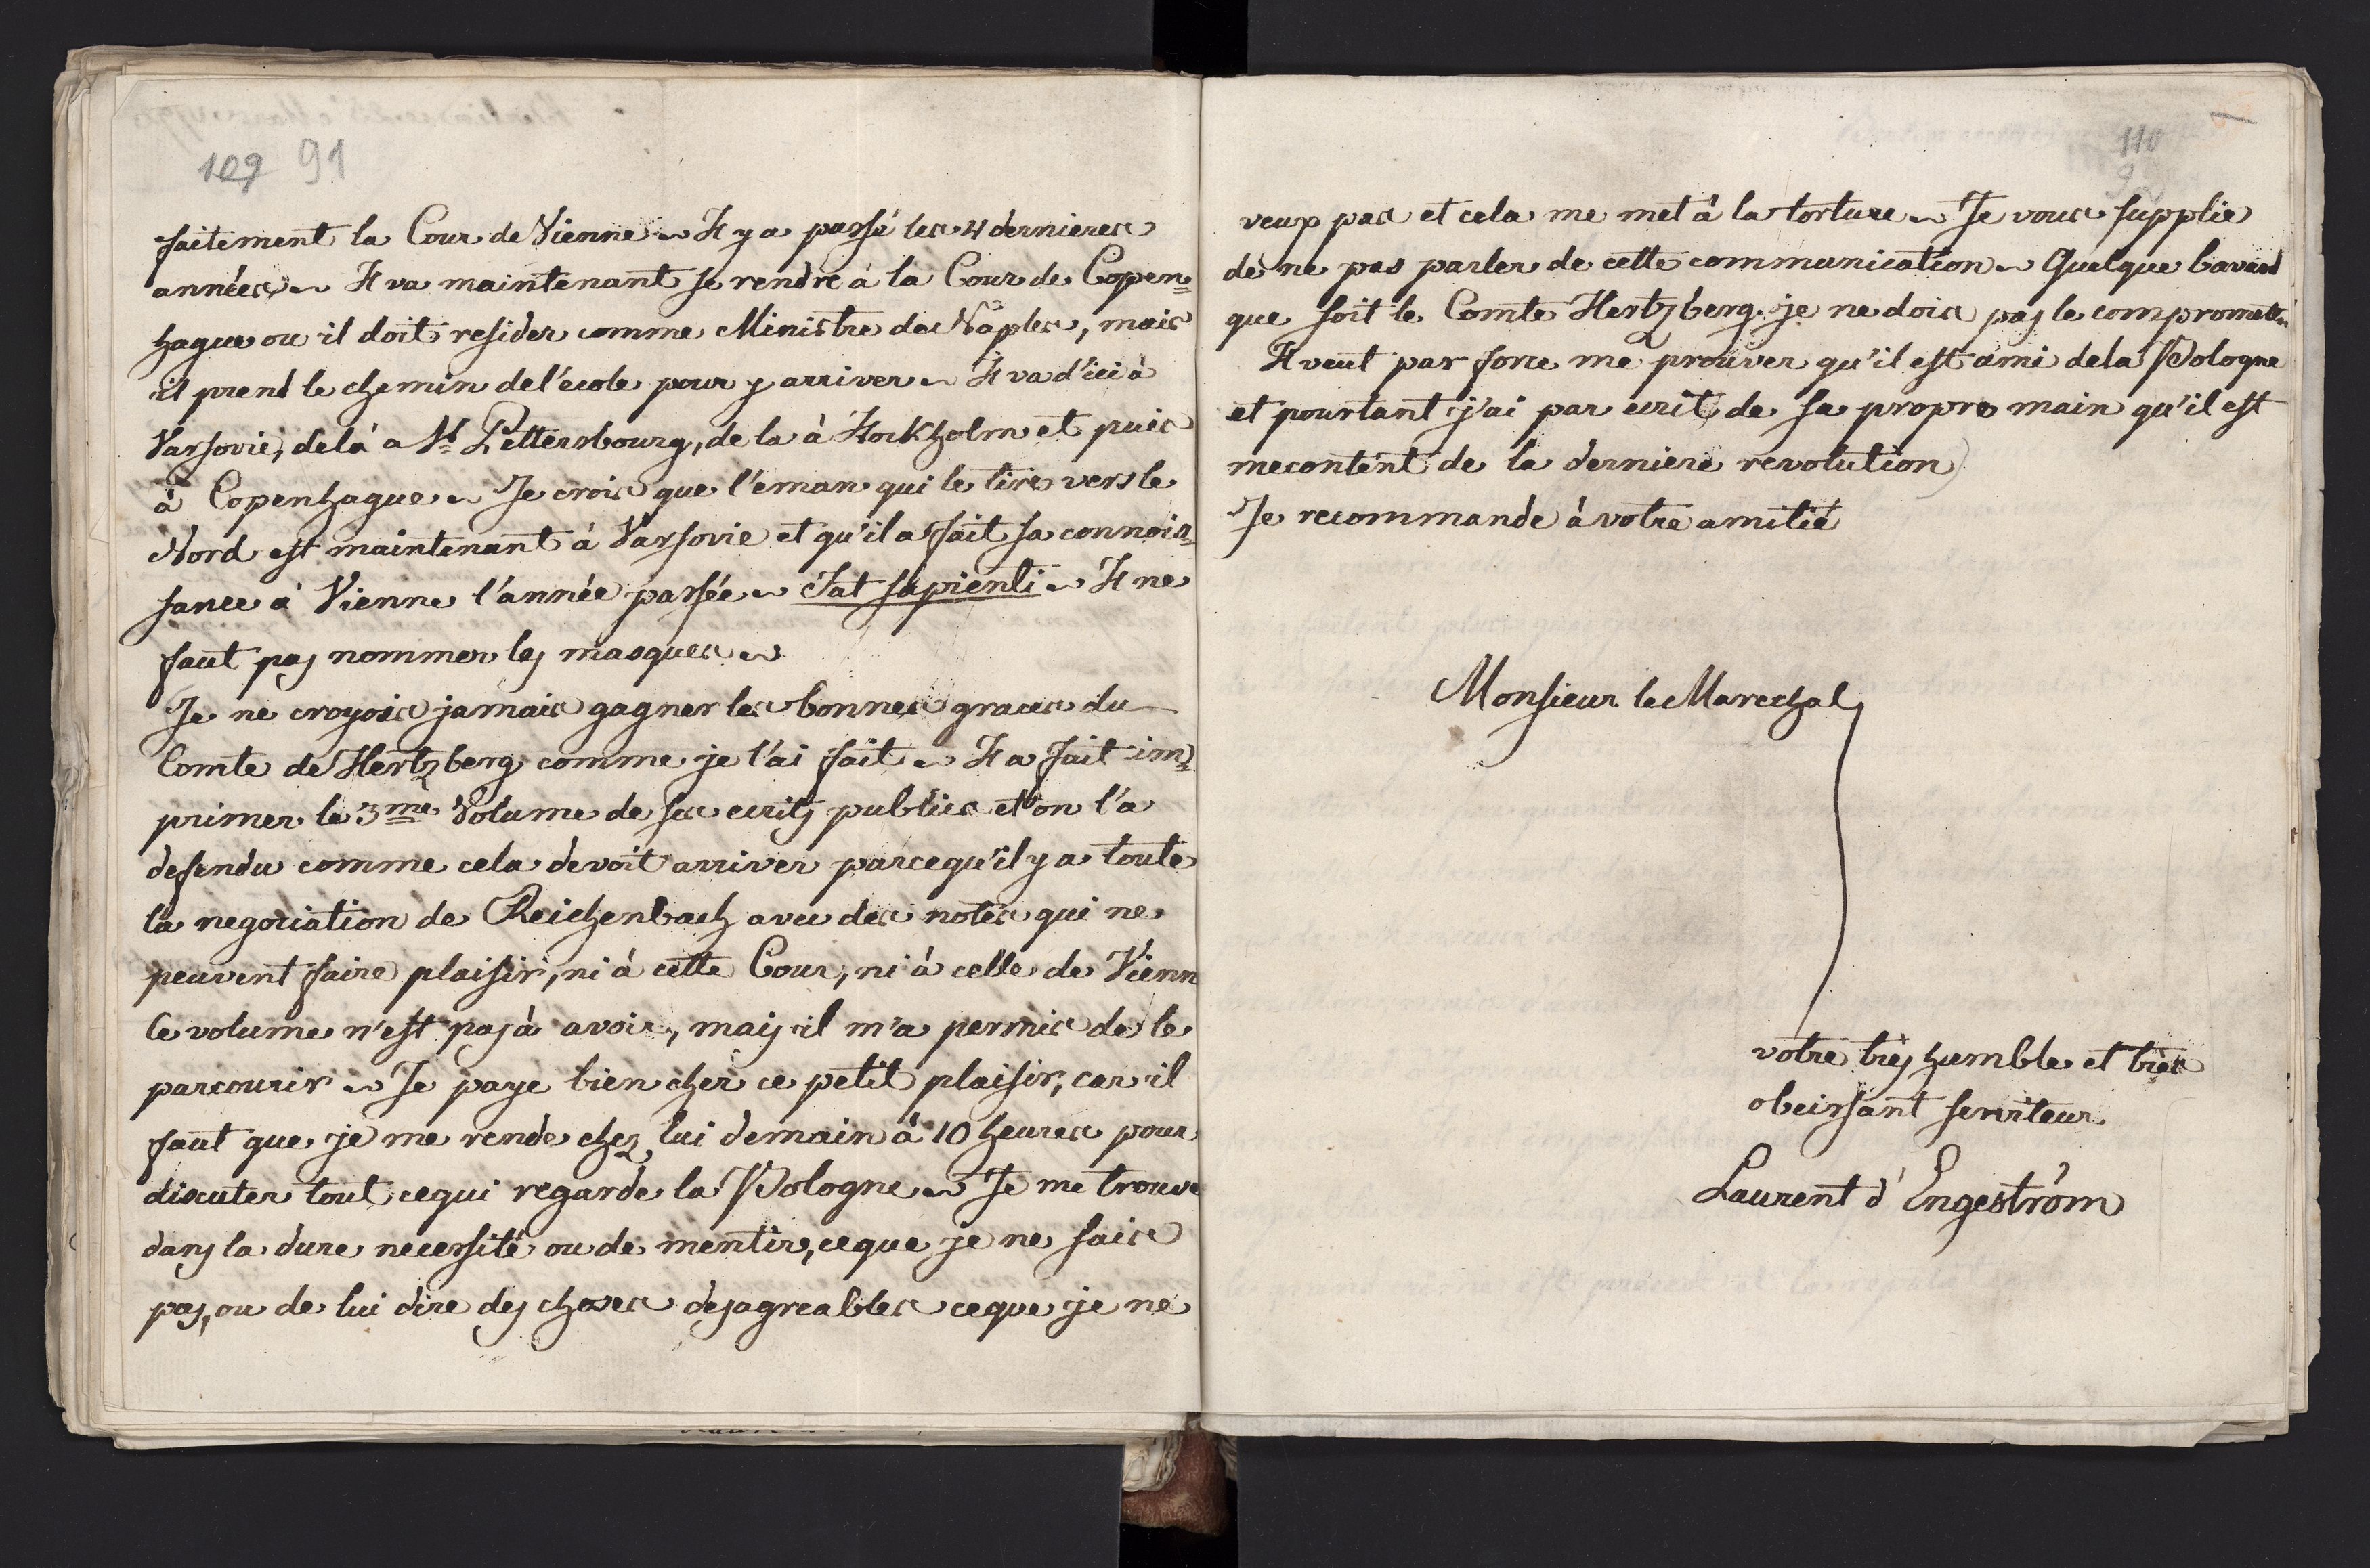 109 91
faitement la Cour de Vienne ~ Il y a passé les 4 dernieres
années ~ Il va maintenant se rendre à la Cour de Copen=
hague ou il doit resider comme Ministre de Naples, mais
il prend le chemin de l'ecole pour y arriver ~ Il va d'ici à
Varsovie, de là a St Pettersbourg, de la à Stockholm et puis
à Copenhague ~ Je crois que l'eman qui le tire vers le
Nord est maintenant à Varsovie et qu'il a fait sa connois=
sance à Vienne l'année passée ~ Sat sapienti ~ Il ne
faut pas nommer les masques ~
Je ne croyois jamais gagner les bonnes graces du
Comte de Hertzberg comme je l'ai fait ~ Il a fait im=
primer le 3me Volume de ses ecrits publics et on l'a
defendu comme cela devoit arriver parcequ'il y a toute
la negociation de Reichenbach avec des notes qui ne
peuvent faire plaisir, ni à cette Cour, ni à celle de Vienn
Ce volume n'est pas à avoir, mais il m'a permis de le
parcourir ~ Je paye bien cher ce petit plaisir, car il
faut que je me rende chez lui demain à 10 heures pour
discuter tout ce qui regarde la Pologne ~ Je me trouve
dans la dure necessité ou de mentir, ce que je ne sais
pas, ou de lui dire des choses desagreables ce que je ne
110
veux pas et cela me met à la torture ~ Je vous supplie
de ne pas parler de cette communication ~ Quelque bavard
que soit le Comte Hertzberg je ne dois pas le compromettre
Il veut par force me prouver qu'il est ami de la Pologne
et pourtant j'ai par ecrit de sa propre main qu'il est
mecontent de la derniere revolution
Je recommande à votre amitié
Monsieur le Marechal
votre très humble et très
obeissant serviteur
Laurent d'Engeström